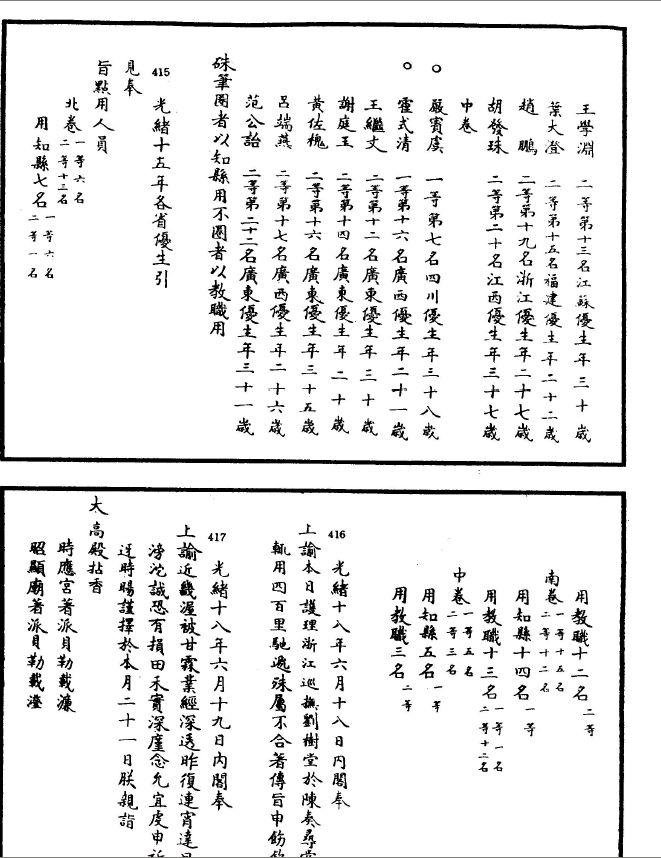 王學淵　二等第十三名江蘇優生年三十歲
葉大澄　二等第十五名福建優生年二十二歲
趙　鵬　二等第十九名浙江優生年二十七歲
胡發珠　二等第二十名江西優生年三十七歲
中卷
○　嚴賓虞　一等第七名四川優生年三十八歲
○　霍式清　一等第十六名廣西優生年二十一歲
王繼文　二等第十二名廣東優生年三十歲
謝庭玉　二等第十四名廣東優生年二十歲
黃佐槐　二等第十六名廣東優生年三十五歲
呂端燕　二等第十七名廣西優生年二十六歲
范公詒　二等第二十二名廣東優生年三十一歲
硃筆圈者以知縣用不圈者以教職用
415　光緒十五年各省優生引
見奉
旨點用人員
北卷　一等六名　二等十三名
用知縣七名　一等六名　二等一名
用教職十二名　二等
南卷　一等十五名　二等十二名
用知縣十四名　一等
用教職十三名　一等一名　二等十二名
中卷　一等五名　二等三名
用知縣五名　一等
用教職三名　二等
416　光緒十八年六月十八日內閣奉
上諭本日護理浙江巡撫劉樹堂於陳奏尋常
輒用四百里馳遞殊屬不合著傳旨申飭欽
417　光緒十八年六月十九日內閣奉
上諭近畿渥被甘霖業經深透昨復連宵達旦
滂沱誠恐有損田禾實深廑念允宜虔申祈
迓時暘謹擇於本月二十一日朕親詣
大高殿拈香
時應宮著派貝勒載濂
昭顯廟著派貝勒載瀅